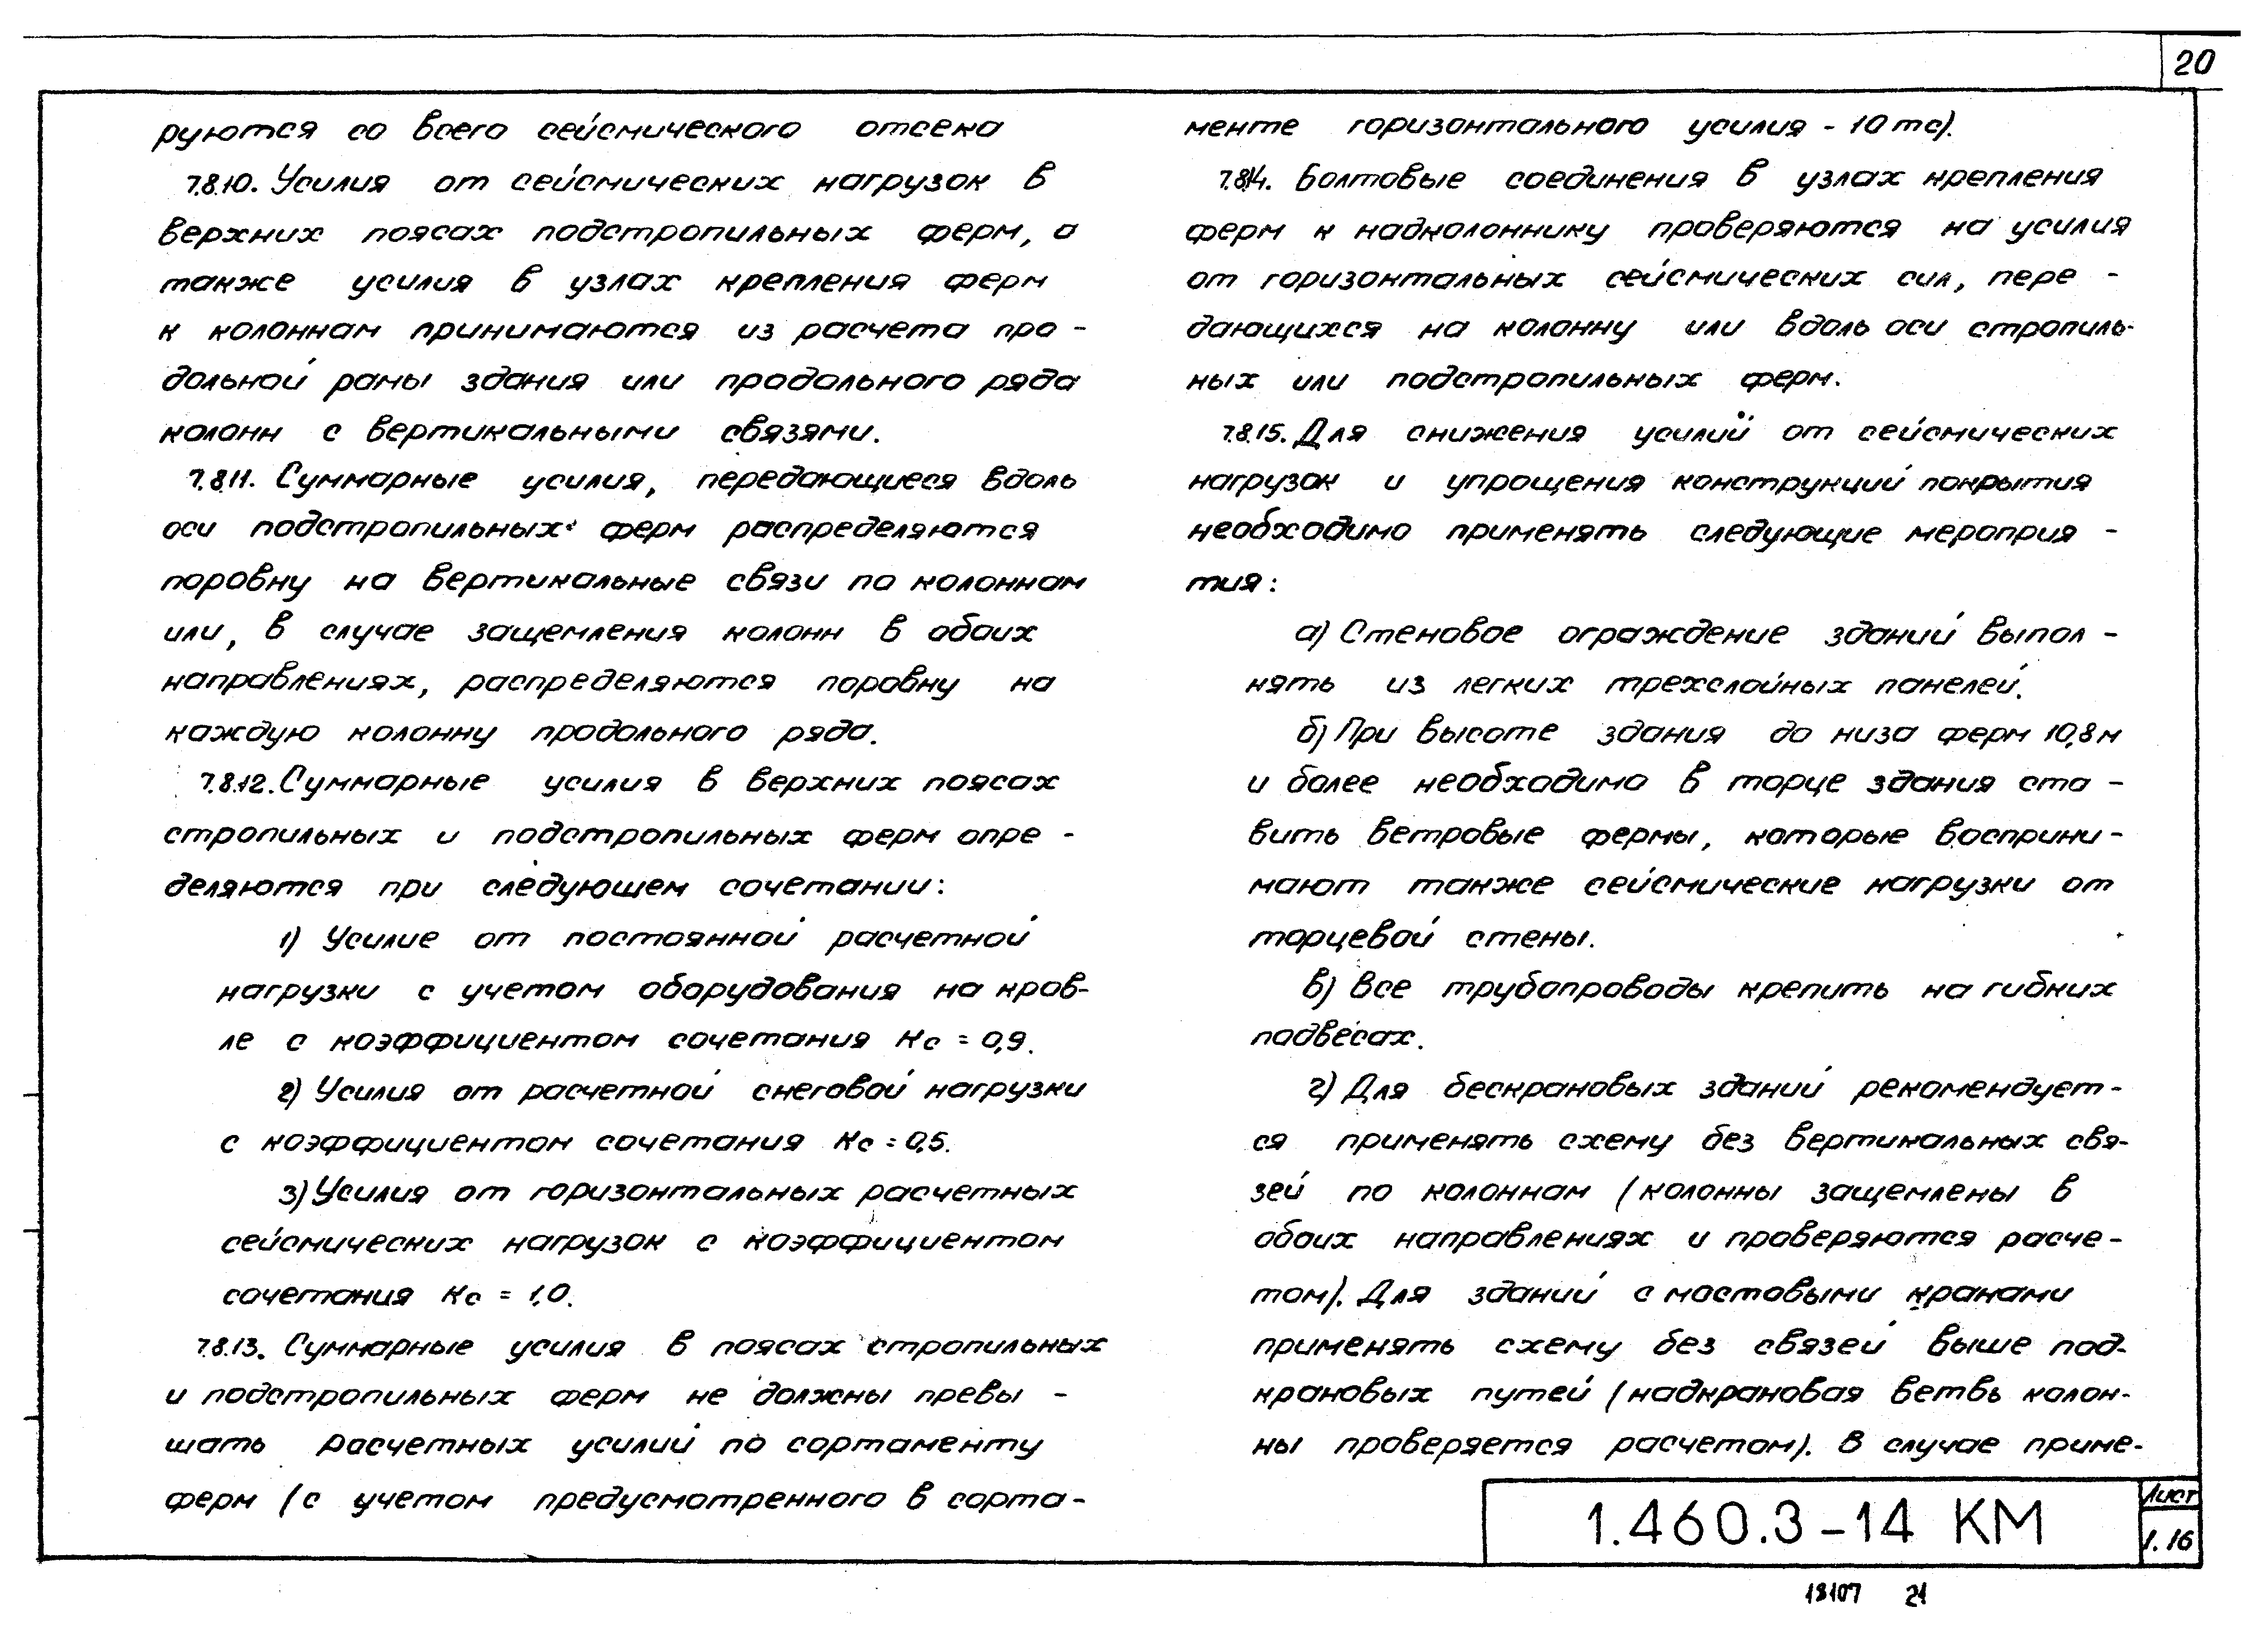 20
руются со всего сейсмического отсека
7.8.10. Усилия от сейсмических нагрузок в
верхних поясах подстропильных ферм, а
также усилия в узлах крепления ферм
к колоннам принимаются из расчета про -
дольной рамы здания или продольного ряда
колонн с вертикальными связями.
7.8.11. Суммарные усилия, передающиеся вдоль
оси подстропильных ферм распределяются
поровну на вертикальные связи по колоннам
или, в случае защемления колонн в обоих
направлениях, распределяются поровну на
каждую колонну продольного ряда.
7.8.12. Суммарные усилия в верхних поясах
стропильных и подстропильных ферм опре -
деляются при следующем сочетании:
1) Усилие от постоянной расчетной
нагрузки с учетом оборудования на кров-
ле с коэффициентом сочетания Кс = 0,9.
2) Усилия от расчетной снеговой нагрузки
с коэффициентом сочетания Кс = 0,5.
3) Усилия от горизонтальных расчетных
сейсмических нагрузок с коэффициентом
сочетания Кс = 1,0.
7.8.13. Суммарные усилия в поясах стропильных
и подстропильных ферм не должны превы -
шать расчетных усилий по сортаменту
ферм (с учетом предусмотренного в сорта-
менте горизонтального усилия - 10 тс).
7.8.14. Болтовые соединения в узлах крепления
ферм к надколоннику проверяются на усилия
от горизонтальных сейсмических сил, пере -
дающихся на колонну или вдоль оси стропиль-
ных или подстропильных ферм.
7.8.15. Для снижения усилий от сейсмических
нагрузок и упрощения конструкций покрытия
необходимо применять следующие мероприя -
тия:
а) Стеновое ограждение зданий выпол -
нять из легких трехслойных панелей.
б) При высоте здания до низа ферм 10,8 м
и более необходимо в торце здания ста -
вить ветровые фермы, которые восприни -
мают также сейсмические нагрузки от
торцевой стены.
в) Все трубопроводы крепить на гибких
подвесах.
г) Для бескрановых зданий рекомендует -
ся применять схему без вертикальных свя-
зей по колоннам (колонны защемлены в
обоих направлениях и проверяются расче -
том). Для зданий с мостовыми кранами
применять схему без связей выше под-
крановых путей (надкрановая ветвь колон-
ны проверяется расчетом). В случае приме-
1.460.3-14 КМ
Лист
1.16
18107 21